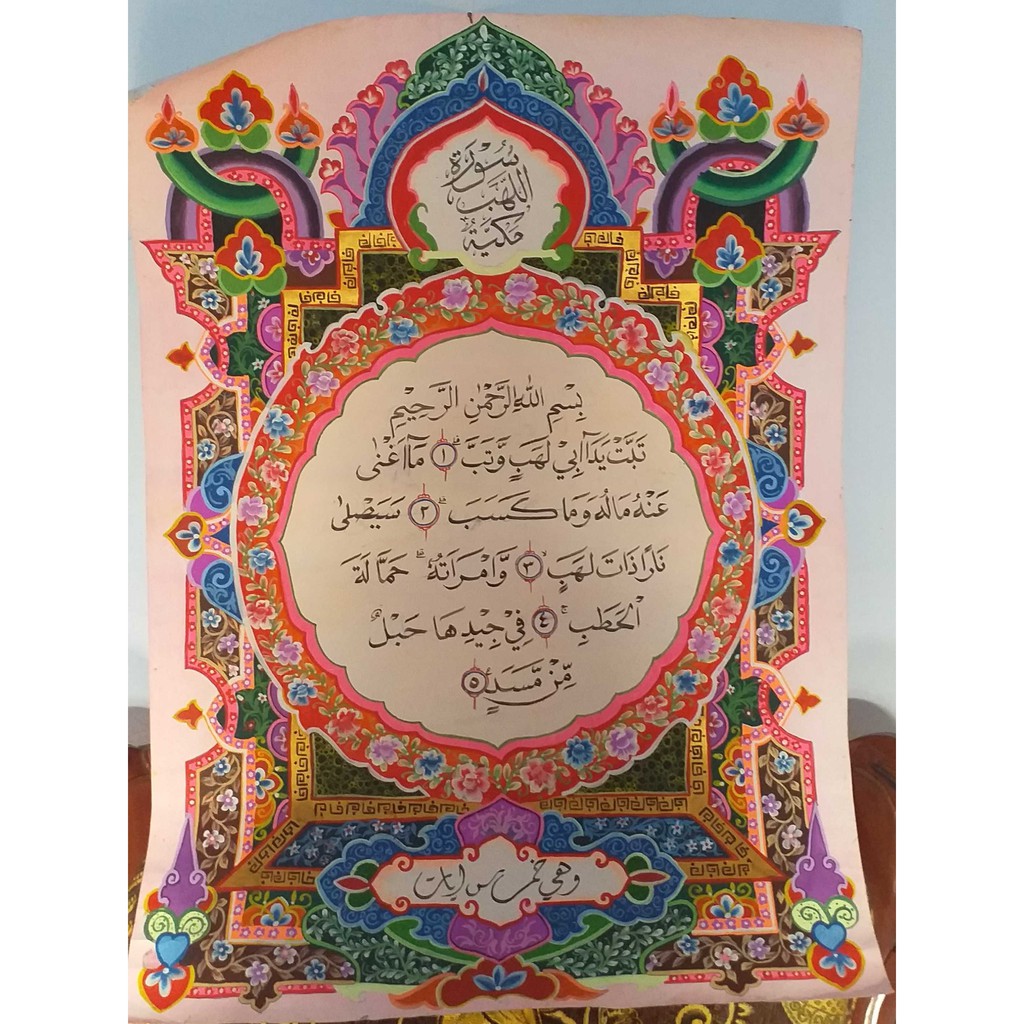 سُوْرَةُ
اللَّهَبْ
مَكِّيَّةٌ
بِسْمِ اللهِ الرَّحْمٰنِ الرَّحِيْمِ
تَبَّتْ يَدَآاَبِيْ لَهَبٍ وَّتَبَّ ۗ ١ مَآاَغْنٰى
عَنْهُ مَالُهُ وَمَا كَسَبَ ۗ ٢ سَيَصْلٰى
نَارًا ذَاتَ لَهَبٍ ٣ وَّامْرَاَتُهُ ۗ حَمَّالَةَ
الْحَطَبِ ۚ ٤ فِيْ جِيْدِهَا حَبْلٌ
مِّنْ مَّسَدٍ ٥
وهي خمس ايات